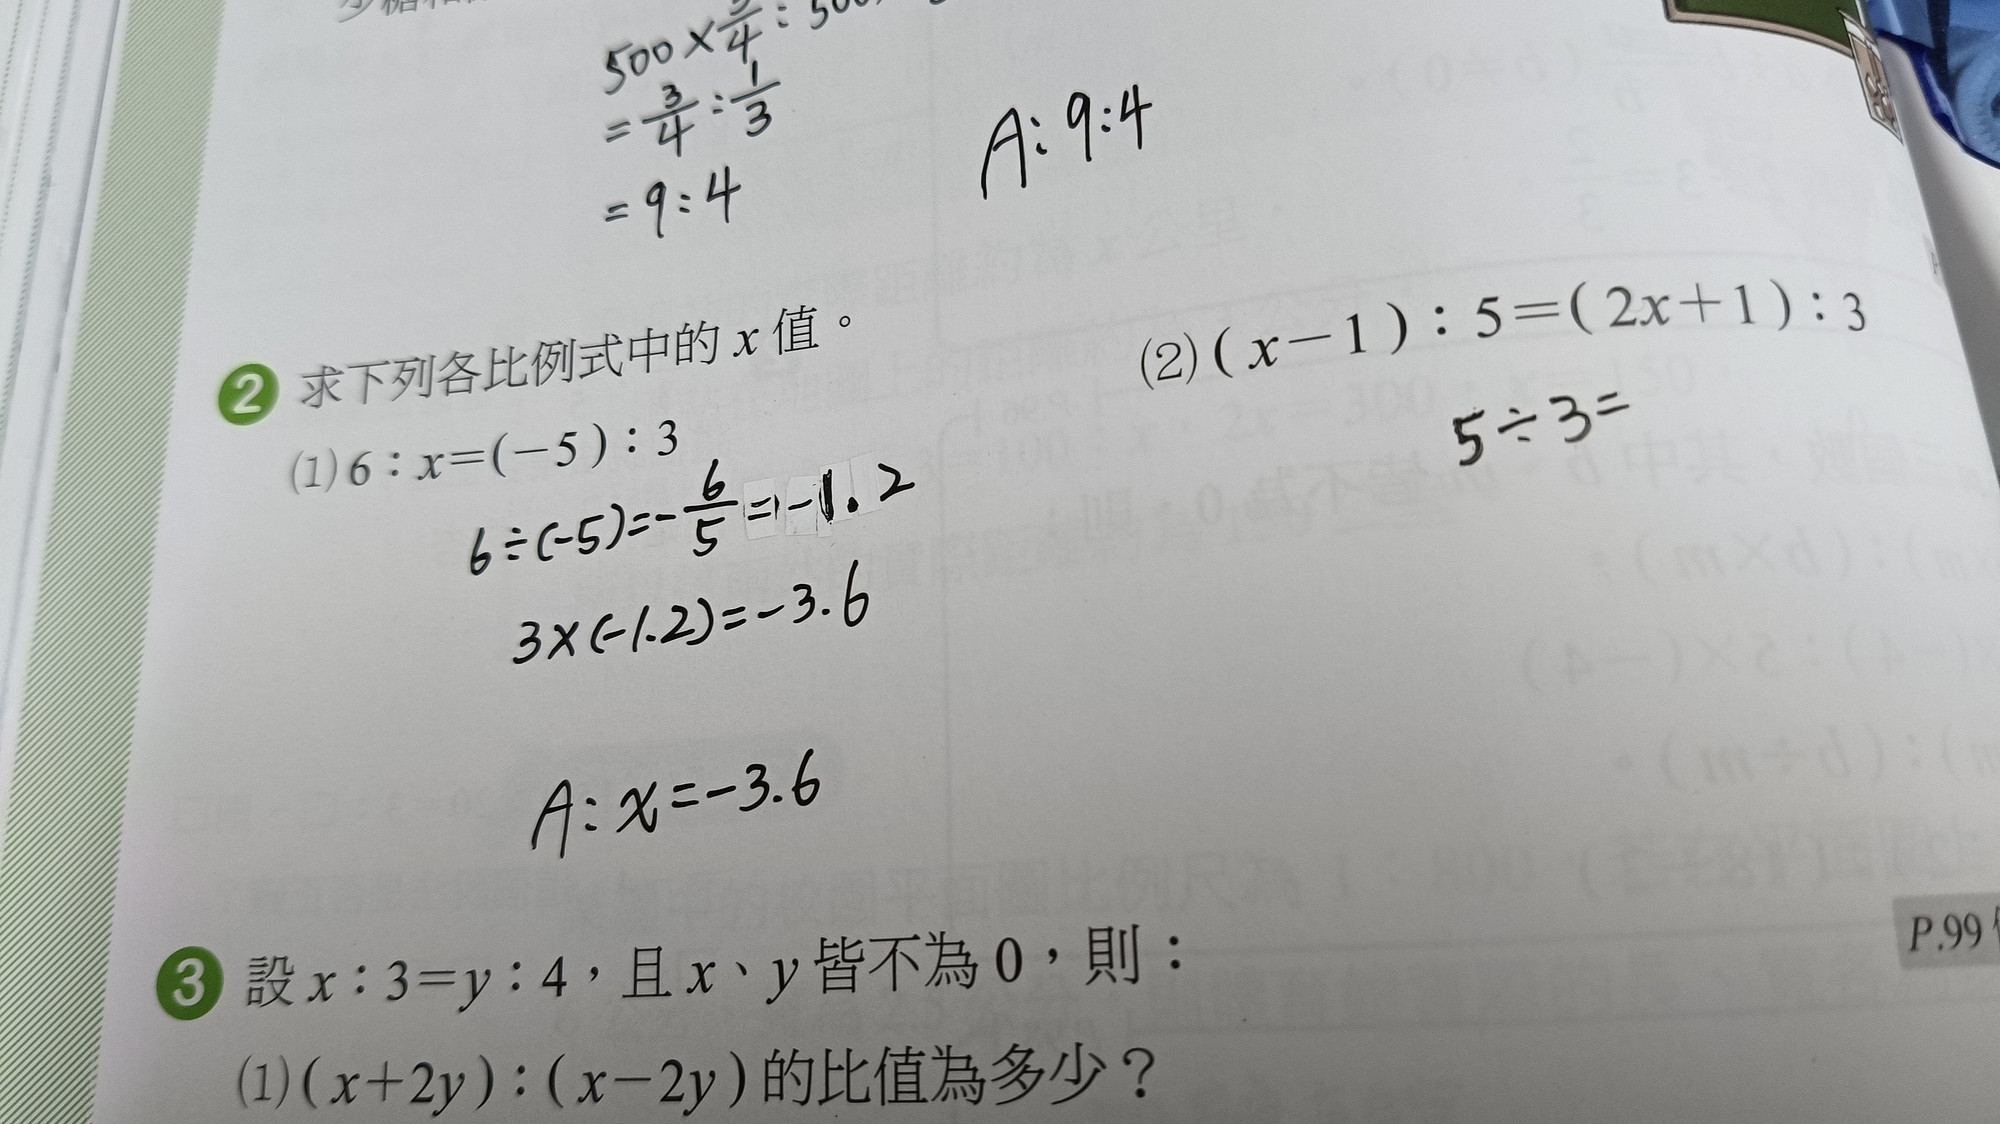 500×3/4:500
=3/4:1/3
=9:4
A:9:4
2 求下列各比例式中的 x 值。
(1) 6:x=(-5):3
6÷(-5)=-6/5=-1.2
3×(-1.2)=-3.6
A:x=-3.6
(2) (x-1):5=(2x+1):3
5÷3=
3 設 x:3=y:4,且 x、y 皆不為 0,則:
P.99
(1) (x+2y):(x-2y)的比值為多少?